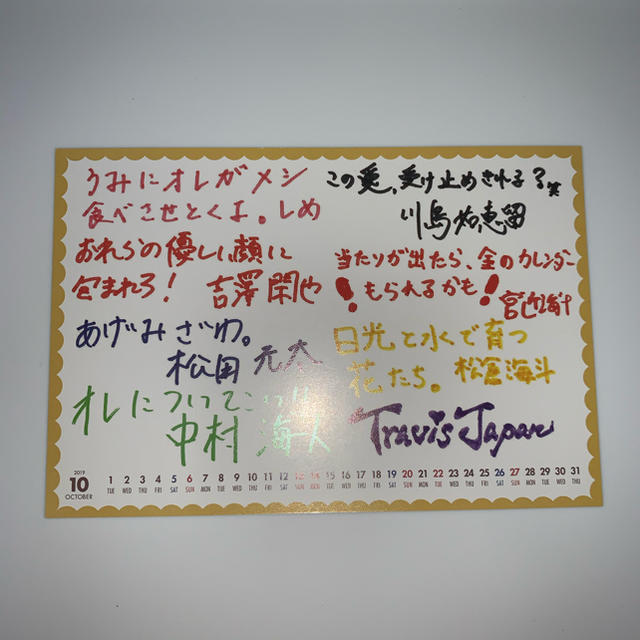 うみにオレがメシ
食べさせとくよ。しめ
おれらの優しい顔に
包まれろ！ 吉澤閑也
あげみざわ。
松田元太
オレについてこい!!
中村海人
この愛、受け止めきれる？笑
川島如恵留
当たりが出たら、金のカレンダー
！もらえるかも！宮近海斗
日光と水で育つ
花たち。松倉海斗
Travis Japan
2019
10
OCTOBER
1 2 3 4 5 6 7 8 9 10 11 12 13 14 15 16 17 18 19 20 21 22 23 24 25 26 27 28 29 30 31
TUE WED THU FRI SAT SUN MON TUE WED THU FRI SAT SUN MON TUE WED THU FRI SAT SUN MON TUE WED THU FRI SAT SUN MON TUE WED THU